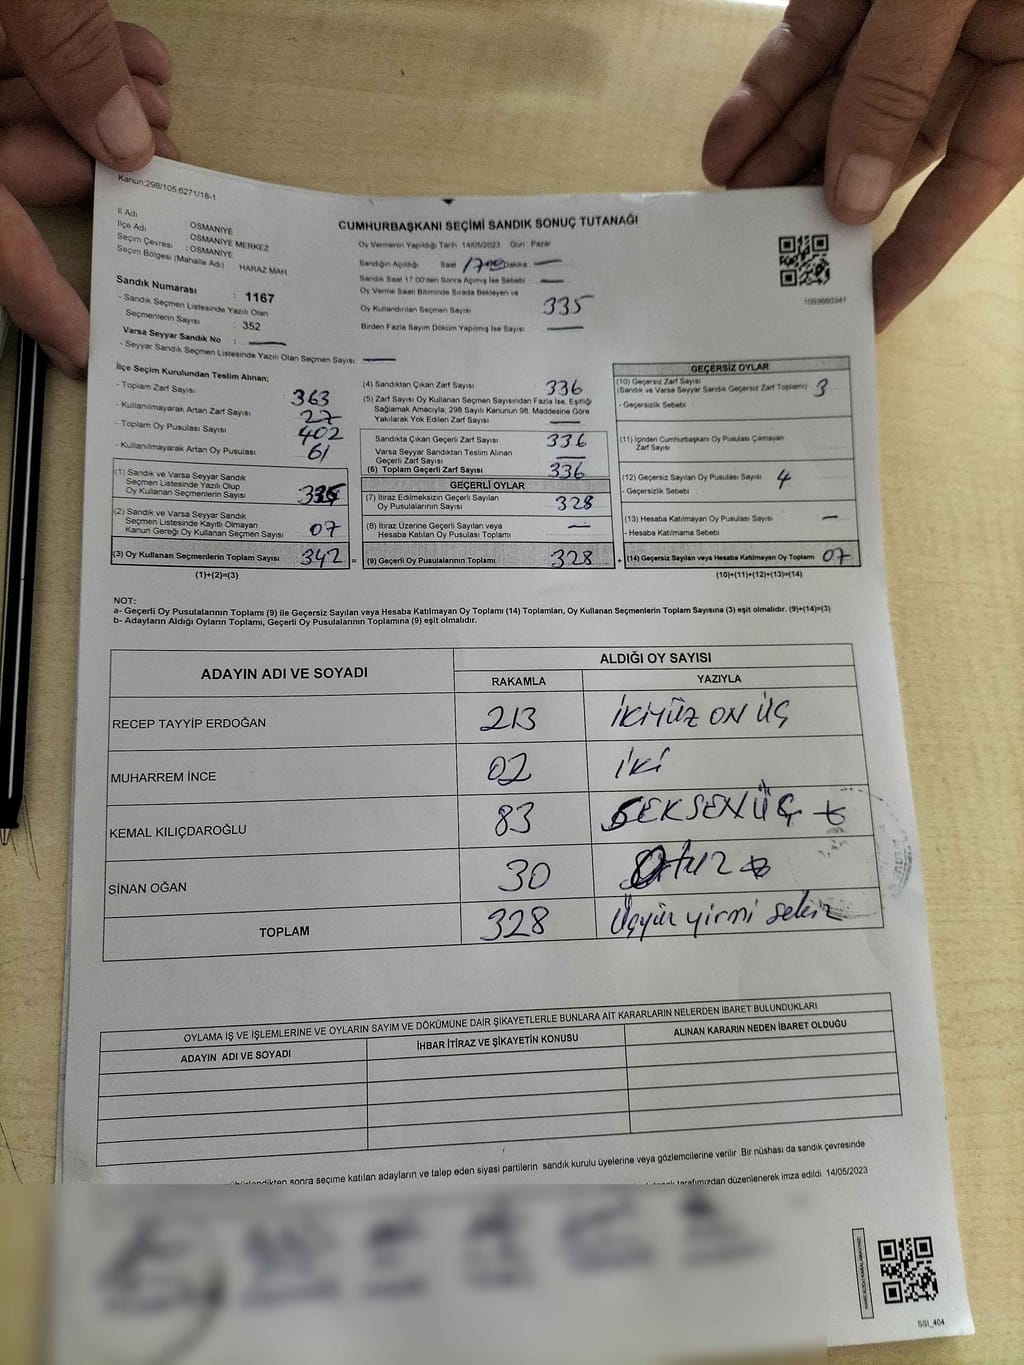 Kanun:298/105;6271/18-1
İl Adı OSMANİYE
İlçe Adı : OSMANİYE MERKEZ
Seçim Çevresi : OSMANİYE
Seçim Bölgesi (Mahalle Adı) HARAZ MAH.
Sandık Numarası : 1167
- Sandık Seçmen Listesinde Yazılı Olan
Seçmenlerin Sayısı : 352
Varsa Seyyar Sandık No :
- Seyyar Sandık Seçmen Listesinde Yazılı Olan Seçmen Sayısı :
CUMHURBAŞKANI SEÇİMİ SANDIK SONUÇ TUTANAĞI
Oy Vermenin Yapıldığı Tarih 14/05/2023 Gün Pazar
Sandığın Açıldığı Saat 1700 Dakika —
Sandık Saat 17.00'den Sonra Açımış İse Sebebi : —
Oy Verme Saati Bitiminde Sırada Bekleyen ve
Oy Kullandırılan Seçmen Sayısı 335
Birden Fazla Sayım Döküm Yapılmış İse Sayısı : —
1093660341
İlçe Seçim Kurulundan Teslim Alınan;
- Toplam Zarf Sayısı 363
- Kullanılmayarak Artan Zarf Sayısı 27
- Toplam Oy Pusulası Sayısı 402
- Kullanılmayarak Artan Oy Pusulası 61
(1) Sandık ve Varsa Seyyar Sandık
Seçmen Listesinde Yazılı Olup
Oy Kullanan Seçmenlerin Sayısı
(2) Sandık ve Varsa Seyyar Sandık
Seçmen Listesinde Kayıtlı Olmayan
Kanun Gereği Oy Kullanan Seçmen Sayısı 07
(3) Oy Kullanan Seçmenlerin Toplam Sayısı 342 =
(1)+(2)=(3)
(4) Sandıktan Çıkan Zarf Sayısı 336
(5) Zarf Sayısı Oy Kullanan Seçmen Sayısından Fazla İse, Eşitliği
Sağlamak Amacıyla; 298 Sayılı Kanunun 98. Maddesine Göre
Yakılarak Yok Edilen Zarf Sayısı —
Sandıkta Çıkan Geçerli Zarf Sayısı 336
Varsa Seyyar Sandıktan Teslim Alınan
Geçerli Zarf Sayısı —
(6) Toplam Geçerli Zarf Sayısı 336
GEÇERLİ OYLAR
(7) İtiraz Edilmeksizin Geçerli Sayılan
Oy Pusulalarının Sayısı 328
(8) İtiraz Üzerine Geçerli Sayılan veya
Hesaba Katılan Oy Pusulası Toplamı —
(9) Geçerli Oy Pusulalarının Toplamı 328 +
GEÇERSİZ OYLAR
(10) Geçersiz Zarf Sayısı
(Sandık ve Varsa Seyyar Sandık Geçersiz Zarf Toplamı) 3
- Geçersizlik Sebebi
(11) İçinden Cumhurbaşkanı Oy Pusulası Çıkmayan
Zarf Sayısı
(12) Geçersiz Sayılan Oy Pusulası Sayısı 4
- Geçersizlik Sebebi
(13) Hesaba Katılmayan Oy Pusulası Sayısı —
- Hesaba Katılmama Sebebi
(14) Geçersiz Sayılan veya Hesaba Katılmayan Oy Toplamı 07
(10)+(11)+(12)+(13)=(14)
NOT:
a- Geçerli Oy Pusulalarının Toplamı (9) ile Geçersiz Sayılan veya Hesaba Katılmayan Oy Toplamı (14) Toplamları, Oy Kullanan Seçmenlerin Toplam Sayısına (3) eşit olmalıdır. (9)+(14)=(3)
b- Adayların Aldığı Oyların Toplamı, Geçerli Oy Pusulalarının Toplamına (9) eşit olmalıdır.
ADAYIN ADI VE SOYADI ALDIĞI OY SAYISI
RAKAMLA YAZIYLA
RECEP TAYYİP ERDOĞAN 213 İKİYÜZ ON ÜÇ
MUHARREM İNCE 02 İKİ
KEMAL KILIÇDAROĞLU 83 SEKSEN ÜÇ
SİNAN OĞAN 30 Otuz
TOPLAM 328 Üçyüz yirmi sekiz
OYLAMA İŞ VE İŞLEMLERİNE VE OYLARIN SAYIM VE DÖKÜMÜNE DAİR ŞİKAYETLERLE BUNLARA AİT KARARLARIN NELERDEN İBARET BULUNDUKLARI
ADAYIN ADI VE SOYADI İHBAR İTİRAZ VE ŞİKAYETİN KONUSU ALINAN KARARIN NEDEN İBARET OLDUĞU
sonra seçime katılan adayların ve talep eden siyasi partilerin sandık kurulu üyelerine veya gözlemcilerine verilir .Bir nüshası da sandık çevresinde
tarafımızdan düzenlenerek imza edildi. 14/05/2023
SSI_404